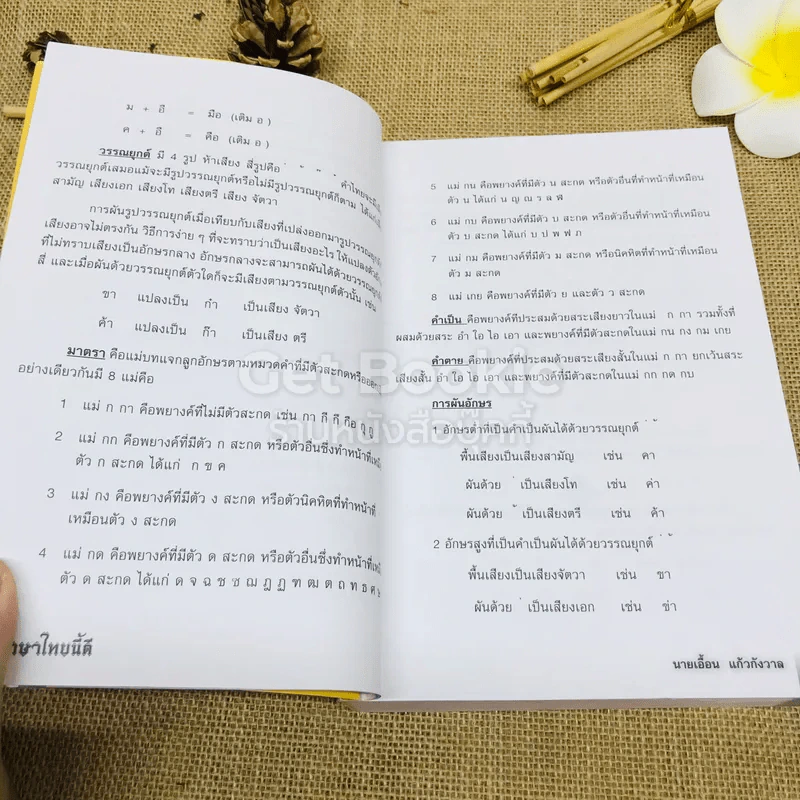 ม + อี = มือ (เติม อ)
ค + อี = คือ (เติม อ)
วรรณยุกต์ มี 4 รูป ห้าเสียง สี่รูปคือ ่ ้ ๊ ๋ คำไทยจะมี
วรรณยุกต์เสมอแม้จะมีรูปวรรณยุกต์หรือไม่มีรูปวรรณยุกต์ก็ตาม ได้แก่
สามัญ เสียงเอก เสียงโท เสียงตรี เสียง จัตวา
การผันรูปวรรณยุกต์เมื่อเทียบกับเสียงที่เปล่งออกมารูปวรรณยุกต์
เสียงอาจไม่ตรงกัน วิธีการง่าย ๆ ที่จะทราบว่าเป็นเสียงอะไร ให้แปลงตัว
ที่ไม่ทราบเสียงเป็นอักษรกลาง อักษรกลางจะสามารถผันได้ด้วยวรรณยุกต์
สี่ และเมื่อผันด้วยวรรณยุกต์ตัวใดก็จะมีเสียงตามวรรณยุกต์ตัวนั้น เช่น
ขา แปลงเป็น ก๋า เป็นเสียง จัตวา
ค้า แปลงเป็น ก๊า เป็นเสียง ตรี
มาตรา คือแม่บทแจกลูกอักษรตามหมวดคำที่มีตัวสะกดหรือออก
อย่างเดียวกันมี 8 แม่คือ
1 แม่ ก กา คือพยางค์ที่ไม่มีตัวสะกด เช่น กา กี กึ กือ กู
2 แม่ กก คือพยางค์ที่มีตัว ก สะกด หรือตัวอื่นซึ่งทำหน้าที่
ตัว ก สะกด ได้แก่ ก ข ค
3 แม่ กง คือพยางค์ที่มีตัว ง สะกด หรือตัวนิคหิตที่ทำหน้าที่
เหมือนตัว ง สะกด
4 แม่ กด คือพยางค์ที่มีตัว ด สะกด หรือตัวอื่นซึ่งทำหน้าที่
ตัว ด สะกด ได้แก่ ด จ ฉ ช ซ ฌ ฎ ฏ ฑ ฒ ต ถ ท ธ ศ
ษาไทยนี้ดี
5 แม่ กน คือพยางค์ที่มีตัว น สะกด หรือตัวอื่นที่ทำหน้าที่เหมือน
ตัว น ได้แก่ น ญ ณ ร ล ฬ
6 แม่ กบ คือพยางค์ที่มีตัว บ สะกด หรือตัวอื่นที่ทำหน้าที่เหมือน
ตัว บ สะกด ได้แก่ บ ป พ ฟ ภ
7 แม่ กม คือพยางค์ที่มีตัว ม สะกด หรือนิคหิตที่ทำหน้าที่เหมือน
ตัว ม สะกด
8 แม่ เกย คือพยางค์ที่มีตัว ย และตัว ว สะกด
คำเป็น คือพยางค์ที่ประสมด้วยสระเสียงยาวในแม่ ก กา รวมทั้งที่
ผสมด้วยสระ อำ ไอ ใอ เอา และพยางค์ที่มีตัวสะกดในแม่ กน กง กม เกย
คำตาย คือพยางค์ที่ประสมด้วยสระเสียงสั้นในแม่ ก กา ยกเว้นสระ
เสียงสั้น อำ ไอ ใอ เอา และพยางค์ที่มีตัวสะกดในแม่ กก กด กบ
การผันอักษร
1 อักษรต่ำที่เป็นคำเป็นผันได้ด้วยวรรณยุกต์ ่ ้
พื้นเสียงเป็นเสียงสามัญ เช่น คา
ผันด้วย ่ เป็นเสียงโท เช่น ค่า
ผันด้วย ้ เป็นเสียงตรี เช่น ค้า
2 อักษรสูงที่เป็นคำเป็นผันได้ด้วยวรรณยุกต์ ่ ้
พื้นเสียงเป็นเสียงจัตวา เช่น ขา
ผันด้วย ่ เป็นเสียงเอก เช่น ข่า
นายเอื้อน แก้วกังวาล
Get Bookie
ร้านหนังสือบุ๊คกี้